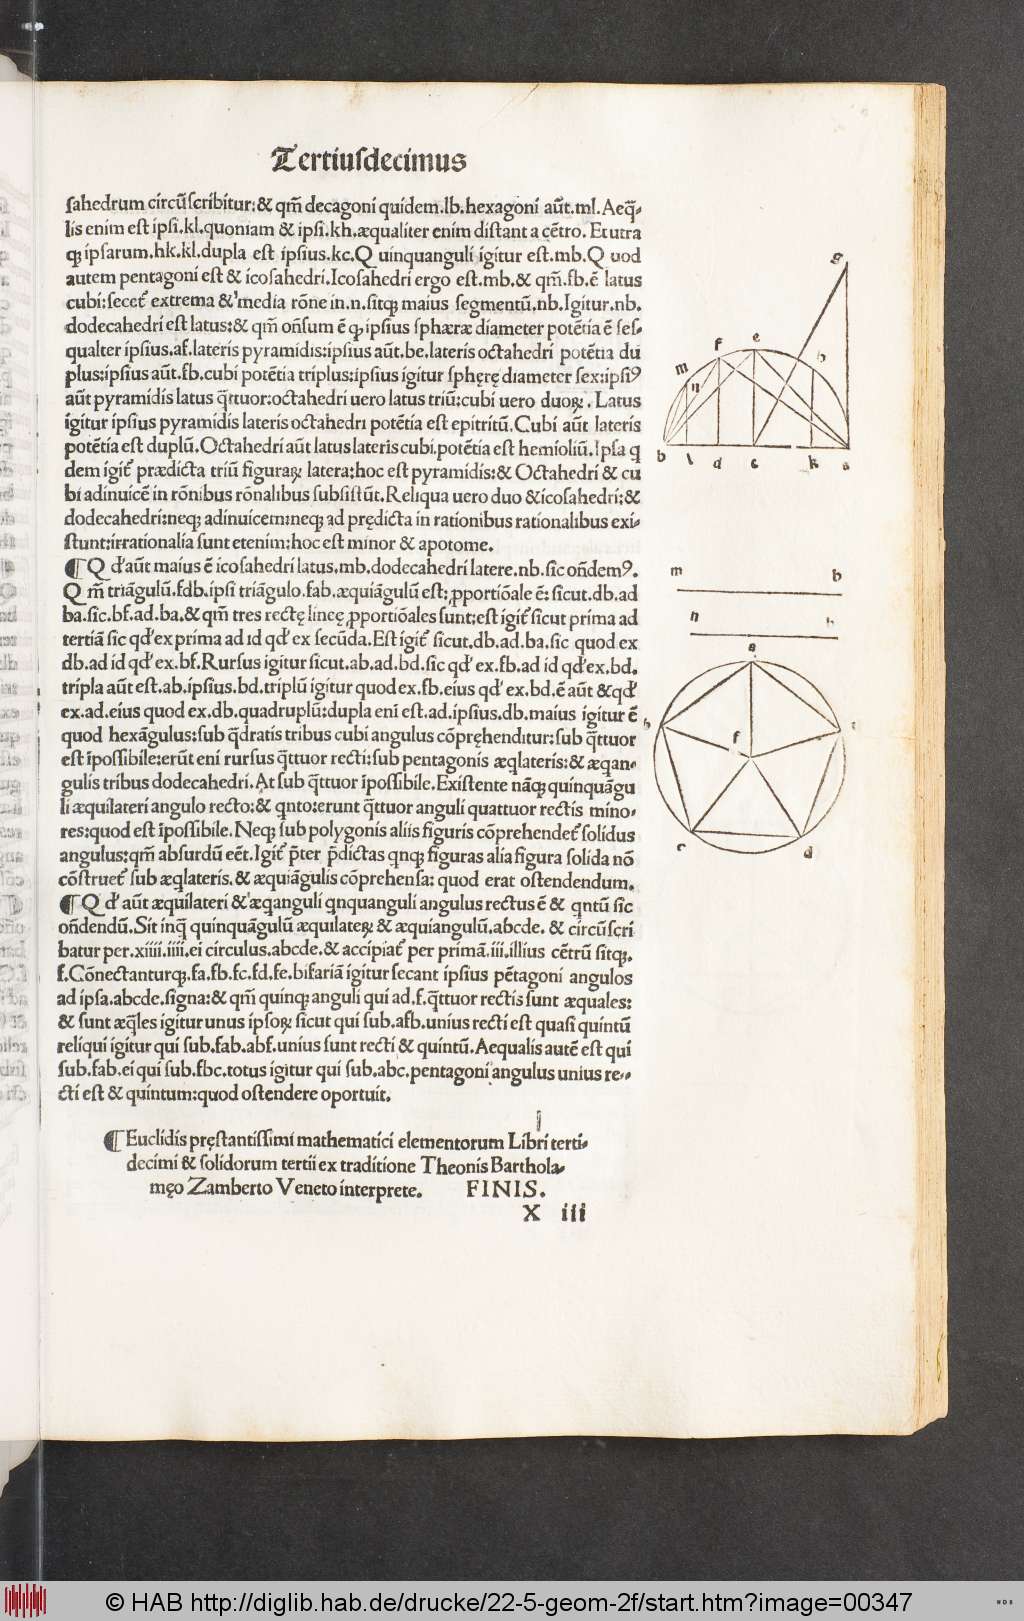 Tertiusdecimus
sahedrum circũscribitur:& qm̃ decagoni quidem.lb.hexagoni aũt.ml.Aeq̃-
lis enim est ipsi.kl.quoniam & ipsi.kh.æqualiter enim distant a cẽtro. Et utra
qꝫ ipsarum.hk.kl.dupla est ipsius.kc.Quinquanguli igitur est.mb.Quod
autem pentagoni est & icosahedri.Icosahedri ergo est.mb.& qm̃.fb.ẽ latus
cubi:secet᷑ extrema & media rõne in.n.sitqꝫ maius segmentũ.nb.Igitur.nb.
dodecahedri est latus:& qm̃ oñsum ẽ qꝫ ipsius sphæræ diameter potẽtia ẽ ses-
qualter ipsius.af.lateris pyramidis:ipsius aũt.be.lateris octahedri potẽtia du
plus:ipsius aũt.fb.cubi potẽtia triplus:ipsius igitur sphęrę diameter sex:ipsiꝰ
aũt pyramidis latus q̃ttuor:octahedri uero latus triũ:cubi uero duoꝝ. Latus
igitur ipsius pyramidis lateris octahedri potẽtia est epitritũ. Cubi aũt lateris
potẽtia est duplũ.Octahedri aũt latus lateris cubi.potẽtia est hemioliũ. Ipsa q
dem igit᷑ prædicta triũ figuraꝝ latera:hoc est pyramidis:& Octahedri & cu
bi adinuicẽ in rõnibus rõnalibus subsistũt.Reliqua uero duo &icosahedri:&
dodecahedri:neqꝫ adinuicem:neqꝫ ad prędicta in rationibus rationalibus exi-
stunt:irrationalia sunt etenim:hoc est minor & apotome.
¶Q d' aũt maius ẽ icosahedri latus.mb.dodecahedri latere.nb.sic oñdemꝰ.
Qm̃ triãgulũ.fdb.ipsi triãgulo.fab.æquiãgulũ est:ꝓportiõale ẽ: sicut.db.ad
ba.sic.bf.ad.ba.& qm̃ tres rectę lineę ꝓportiõales sunt:est igit᷑ sicut prima ad
tertiã sic qd' ex prima ad id qd' ex secũda.Est igit᷑ sicut.db.ad.ba.sic quod ex
db.ad id qd' ex.bf.Rursus igitur sicut.ab.ad.bd.sic qd' ex.fb.ad id qd'ex.bd.
tripla aũt est.ab.ipsius.bd.triplũ igitur quod ex.fb.eius qd' ex.bd.ẽ aũt &qd'
ex.ad.eius quod ex.db.quadruplũ:dupla eni est.ad.ipsius.db.maius igitur ẽ
quod hexãgulus:sub q̃dratis tribus cubi angulus cõpręhenditur:sub q̃ttuor
est ĩpossibile:erũt eni rursus q̃ttuor recti:sub pentagonis æq̃lateris:& æqan-
gulis tribus dodecahedri.At sub q̃ttuor ĩpossibile.Existente nãqꝫ quinquãgu
li æquilateri angulo recto:& qnto:erunt q̃ttuor anguli quattuor rectis mino-
res:quod est ĩpossibile.Neqꝫ sub polygonis aliis figuris cõprehendet᷑ solidus
angulus:qm̃ absurdũ eẽt.Igit᷑ p̃ter p̃dictas qnqꝫ figuras alia figura solida nõ
cõstruet᷑ sub æq̃lateris.& æquiãgulis cõprehensa: quod erat ostendendum.
¶Q d' aũt æquilateri & æqanguli qnquanguli angulus rectus ẽ & qntũ sic
oñdendũ.Sit inq̃ quinquãgulũ æquilateꝝ & æquiangulũ.abcde. & circũscri
batur per.xiiii.iiii.ei circulus.abcde.& accipiat᷑ per primã.iii.illius cẽtrũ sitqꝫ.
f.Cõnectanturqꝫ.fa.fb.fc.fd.fe.bifariã igitur secant ipsius pẽtagoni angulos
ad ipsa.abcde.signa:& qm̃ quinqꝫ anguli qui ad.f.q̃ttuor rectis sunt æquales:
& sunt æq̃les igitur unus ipsoꝝ sicut qui sub.afb.unius recti est quasi quintũ
reliqui igitur qui sub.fab.abf.unius sunt recti & quintũ.Aequalis autẽ est qui
sub.fab.ei qui sub.fbc.totus igitur qui sub.abc.pentagoni angulus unius re-
cti est & quintum:quod ostendere oportuit.
¶Euclidis pręstantissimi mathematici elementorum Libri terti-
decimi & solidorum tertii ex traditione Theonis Barthola-
męo Zamberto Veneto interprete. FINIS.
X iii
g
f e h
m
n
b l d c k a
m b
n b
a
b e
f
c d
© HAB http://diglib.hab.de/drucke/22-5-geom-2f/start.htm?image=00347